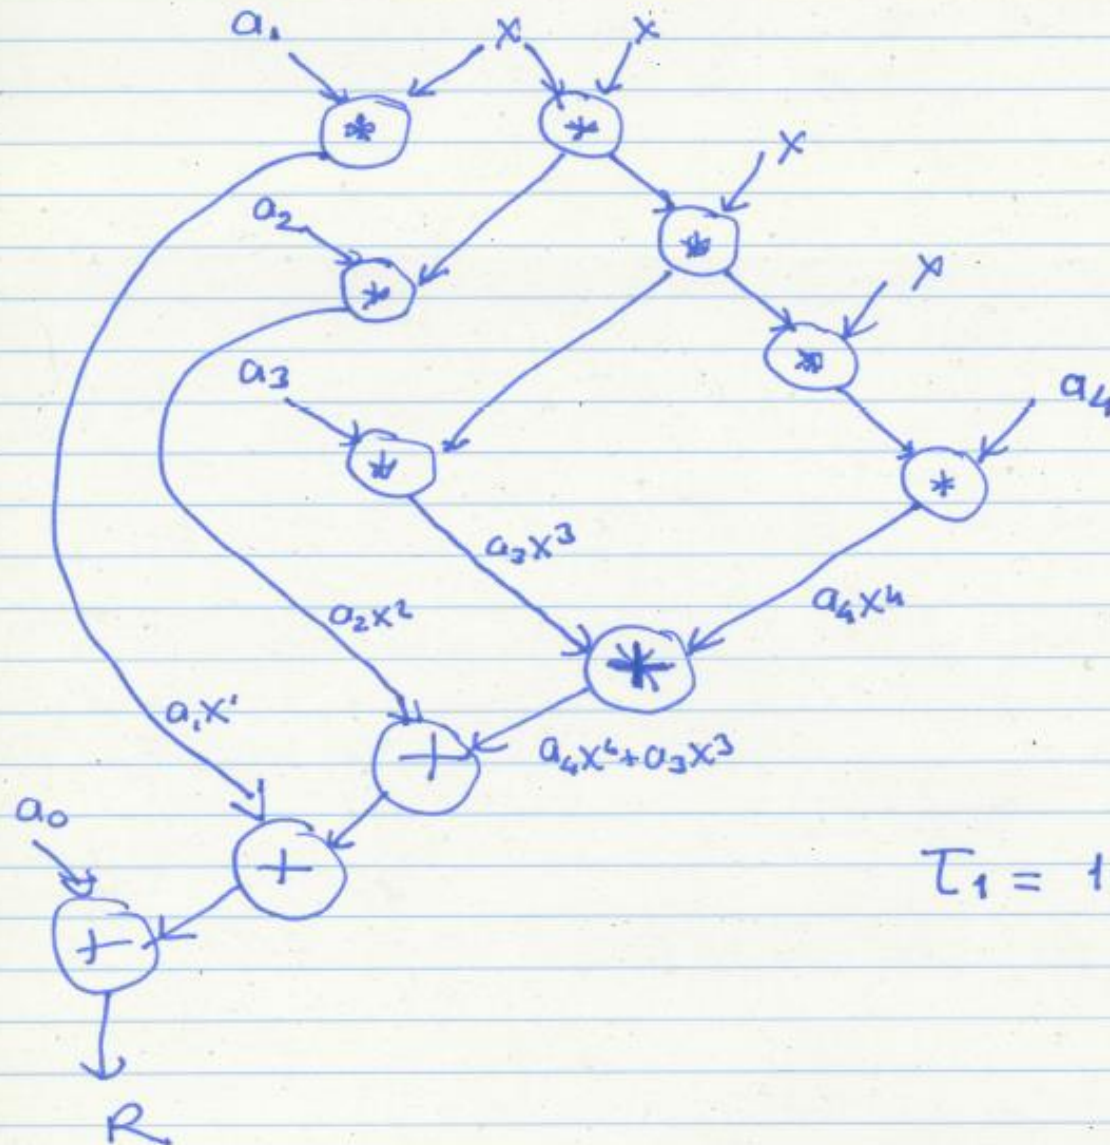 a₁ x x
* * x
a₂ * x
*
a₃ * a₄
* *
a₃x³
a₂x² a₄x⁴
*
a₁x¹
+ a₄x⁴+a₃x³
a₀
+ T₁ = 1
+
R